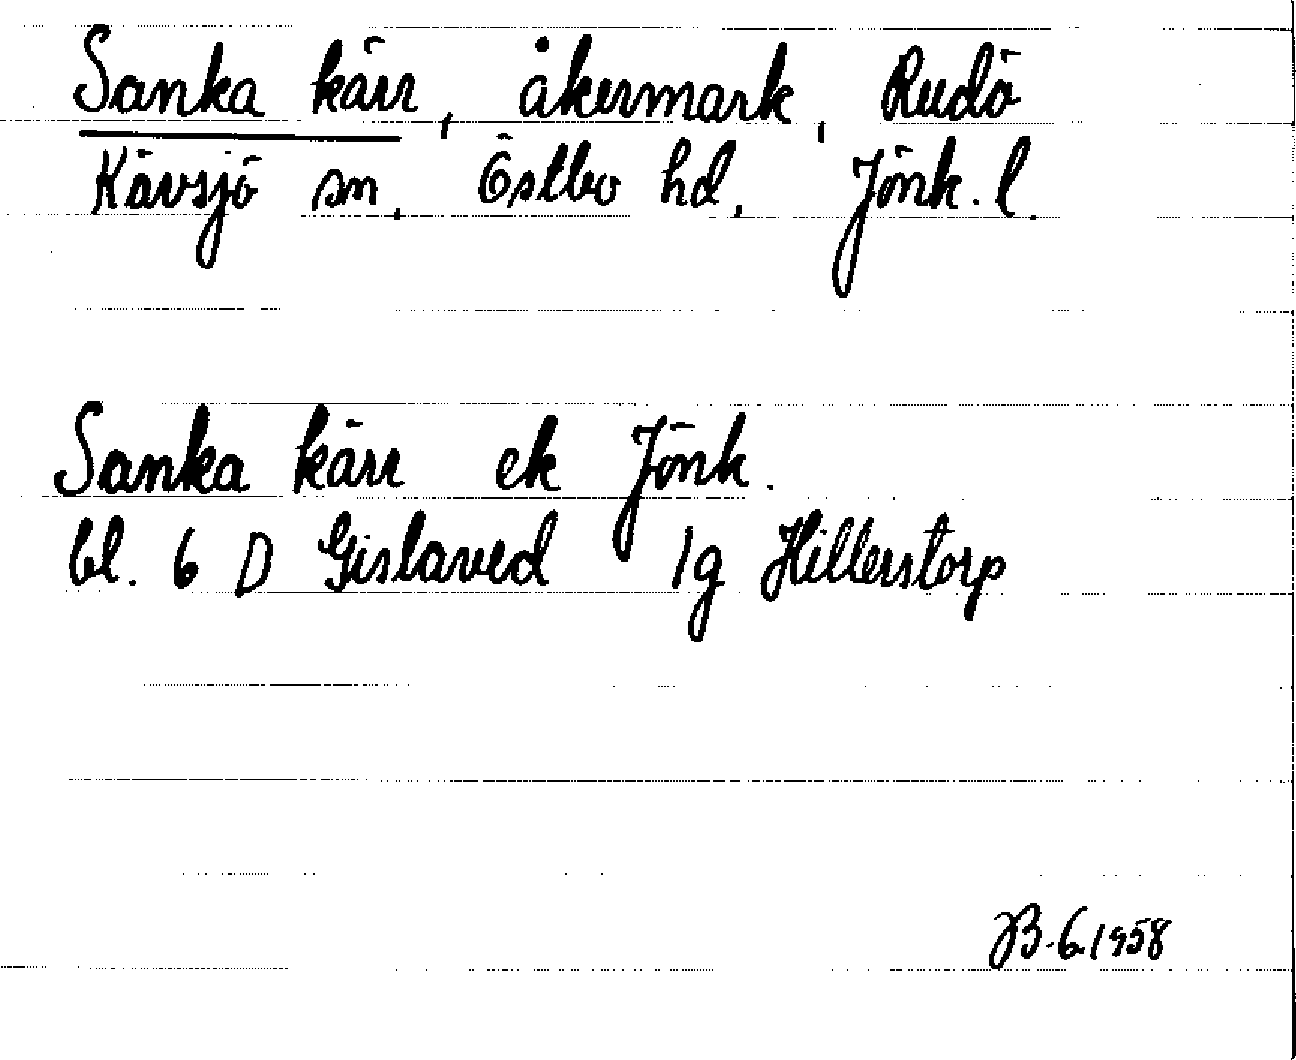 Sanka kärr, åkermark, Rudö
Kävsjö sn, Östbo hd, Jönk. l.
Sanka kärr ek Jönk.
bl. 6 D Gislaved 1g Hillerstorp
JB-G.1958